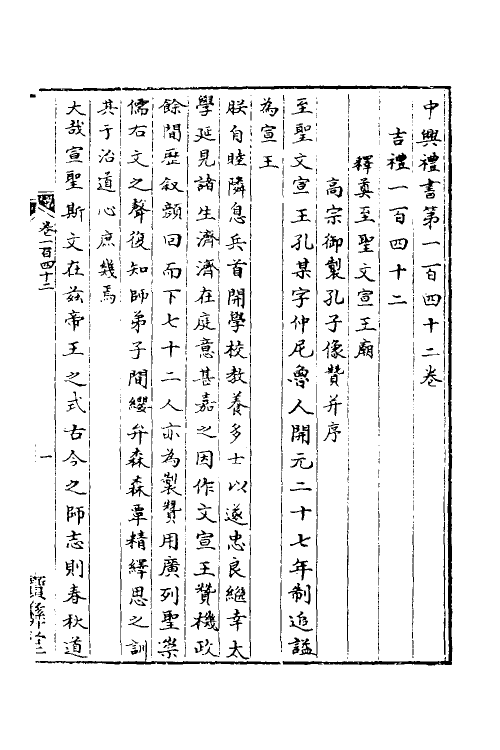 中興禮書第一百四十二卷
吉禮一百四十二
釋奠至聖文宣王廟
高宗御製孔子像贊并序
至聖文宣王孔某字仲尼魯人開元二十七年制追謚
為宣王
朕自睦隣息兵首開學校教養多士以遂忠良繼幸太
學延見諸生濟濟在庭意甚嘉之因作文宣王贊機政
餘間歷叙顔回而下七十二人亦為製贊用廣列聖崇
儒右文之聲復知師弟子間纓弁森森覃精繹思之訓
其于治道心庶幾焉
大哉宣聖斯文在兹帝王之式古今之師志則春秋道
卷一百四十二
一